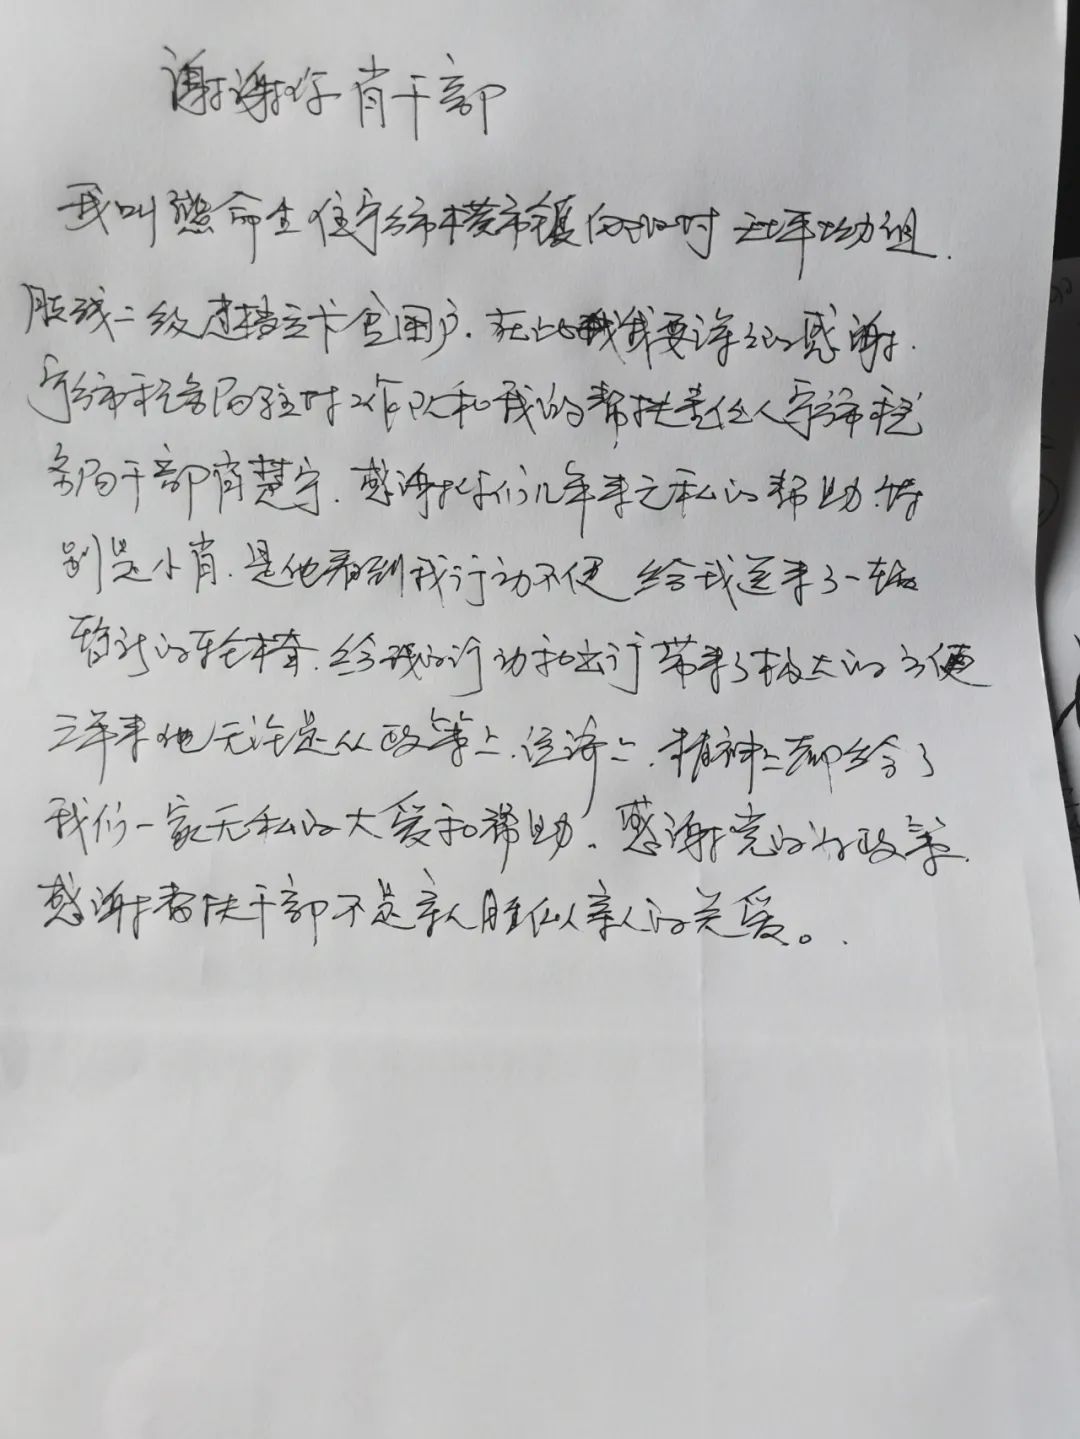 谢谢你肖干部
我叫熊命生住宁乡市横市镇 村 坪 组.
肢残二级建档立卡贫困户.在此我要深深的感谢.
宁乡市税务局驻村工作队和我的帮扶责任人宁乡市税
务局干部肖慧宇.感谢你们几年来无私的帮助.特
别是小肖.是他看到我行动不便 给我送来了一辆
崭新的轮椅.给我的行动和出行带来了极大的方便
三年来他无论是从政策上.经济上.精神上都给了
我们一家无私的大爱和帮助.感谢党的好政策.
感谢帮扶干部不是亲人胜似亲人的关爱。.